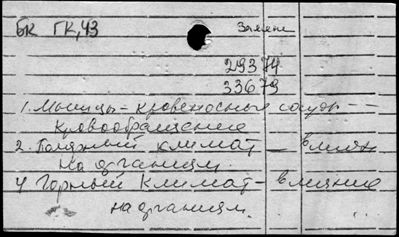 БК ГК,43 Замени
29374
33679
1. Мышцы - кровеносные сосуды --
Кровообращение
2. Горный климат - влиян
На организм.
4 Горный Климат - влияние
на организм.